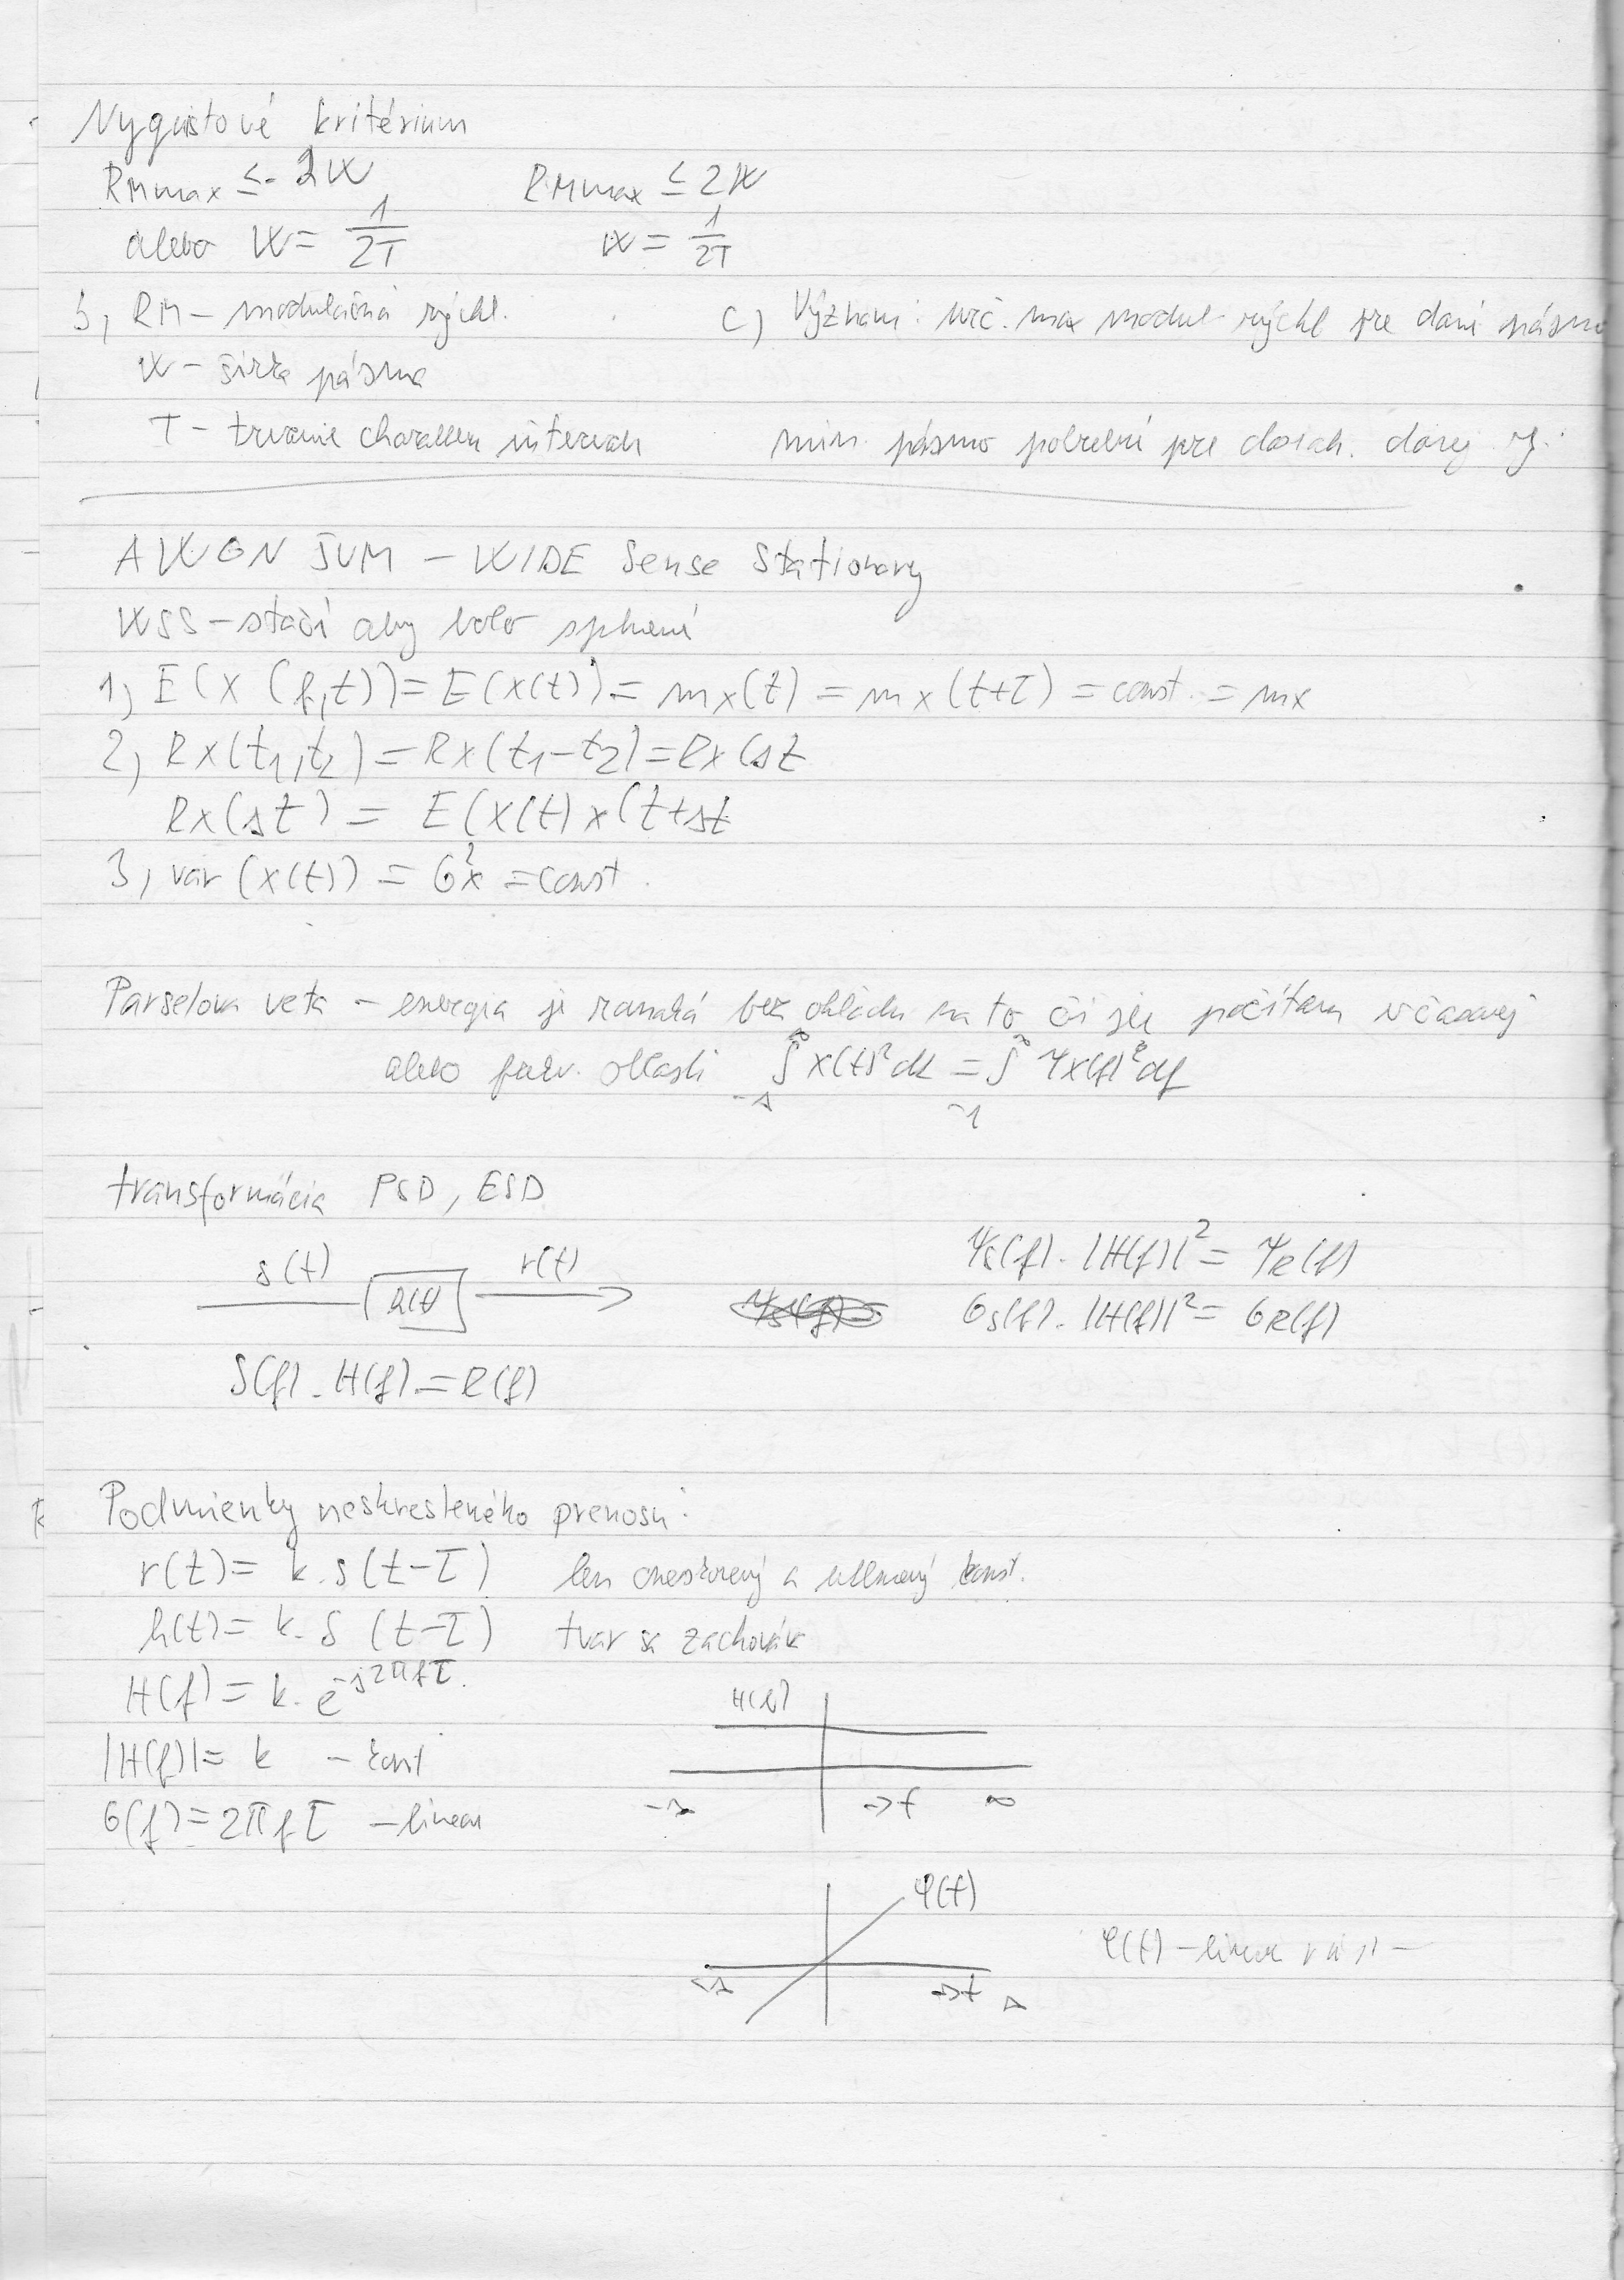 Nyquistové kritérium
RMmax ≤ 2W    RMmax ≤ 2W
alebo W = 1/2T    W = 1/2T
b, RM – modulačná rýchl.    c) Význam: urč. max modul rýchl pre dané pásmo
W – šírka pásma
T – trvanie charakter intervalu    min. pásmo potrebné pre dosiah. danej rj.
AWGN ŠUM – WIDE Sense Stationary
WSS – stačí aby bolo splnení
1, E(X(f,t)) = E(x(t)) = mx(t) = mx(t+τ) = const. = mx
2, Rx(t1,t2) = Rx(t1-t2) = Rx(Δt
Rx(Δt) = E(X(t) x(t+Δt
3, var(x(t)) = σ²x = const.
Parselova veta – energia je rovnaká bez ohľadu na to či je počítam v časovej
alebo frekv. oblasti ∫ x(t)² dt = ∫ Ψx(f)² df
transformácia PSD, ESD
s(t)    h(t)    r(t)    Ψs(f) . |H(f)|² = ΨR(f)
Gs(f) . |H(f)|² = GR(f)
S(f) . H(f) = R(f)
Podmienky neskresleného prenosu:
r(t) = k . s(t-τ)    len oneskorený a utlmený konst.
h(t) = k . δ (t-τ)    tvar sa zachováva
H(f) = k . e^-j2πfτ.
H(f)
|H(f)| = k – konst
→f    ∞
θ(f) = 2πfτ – linear
φ(f)
φ(f) – linear
→f